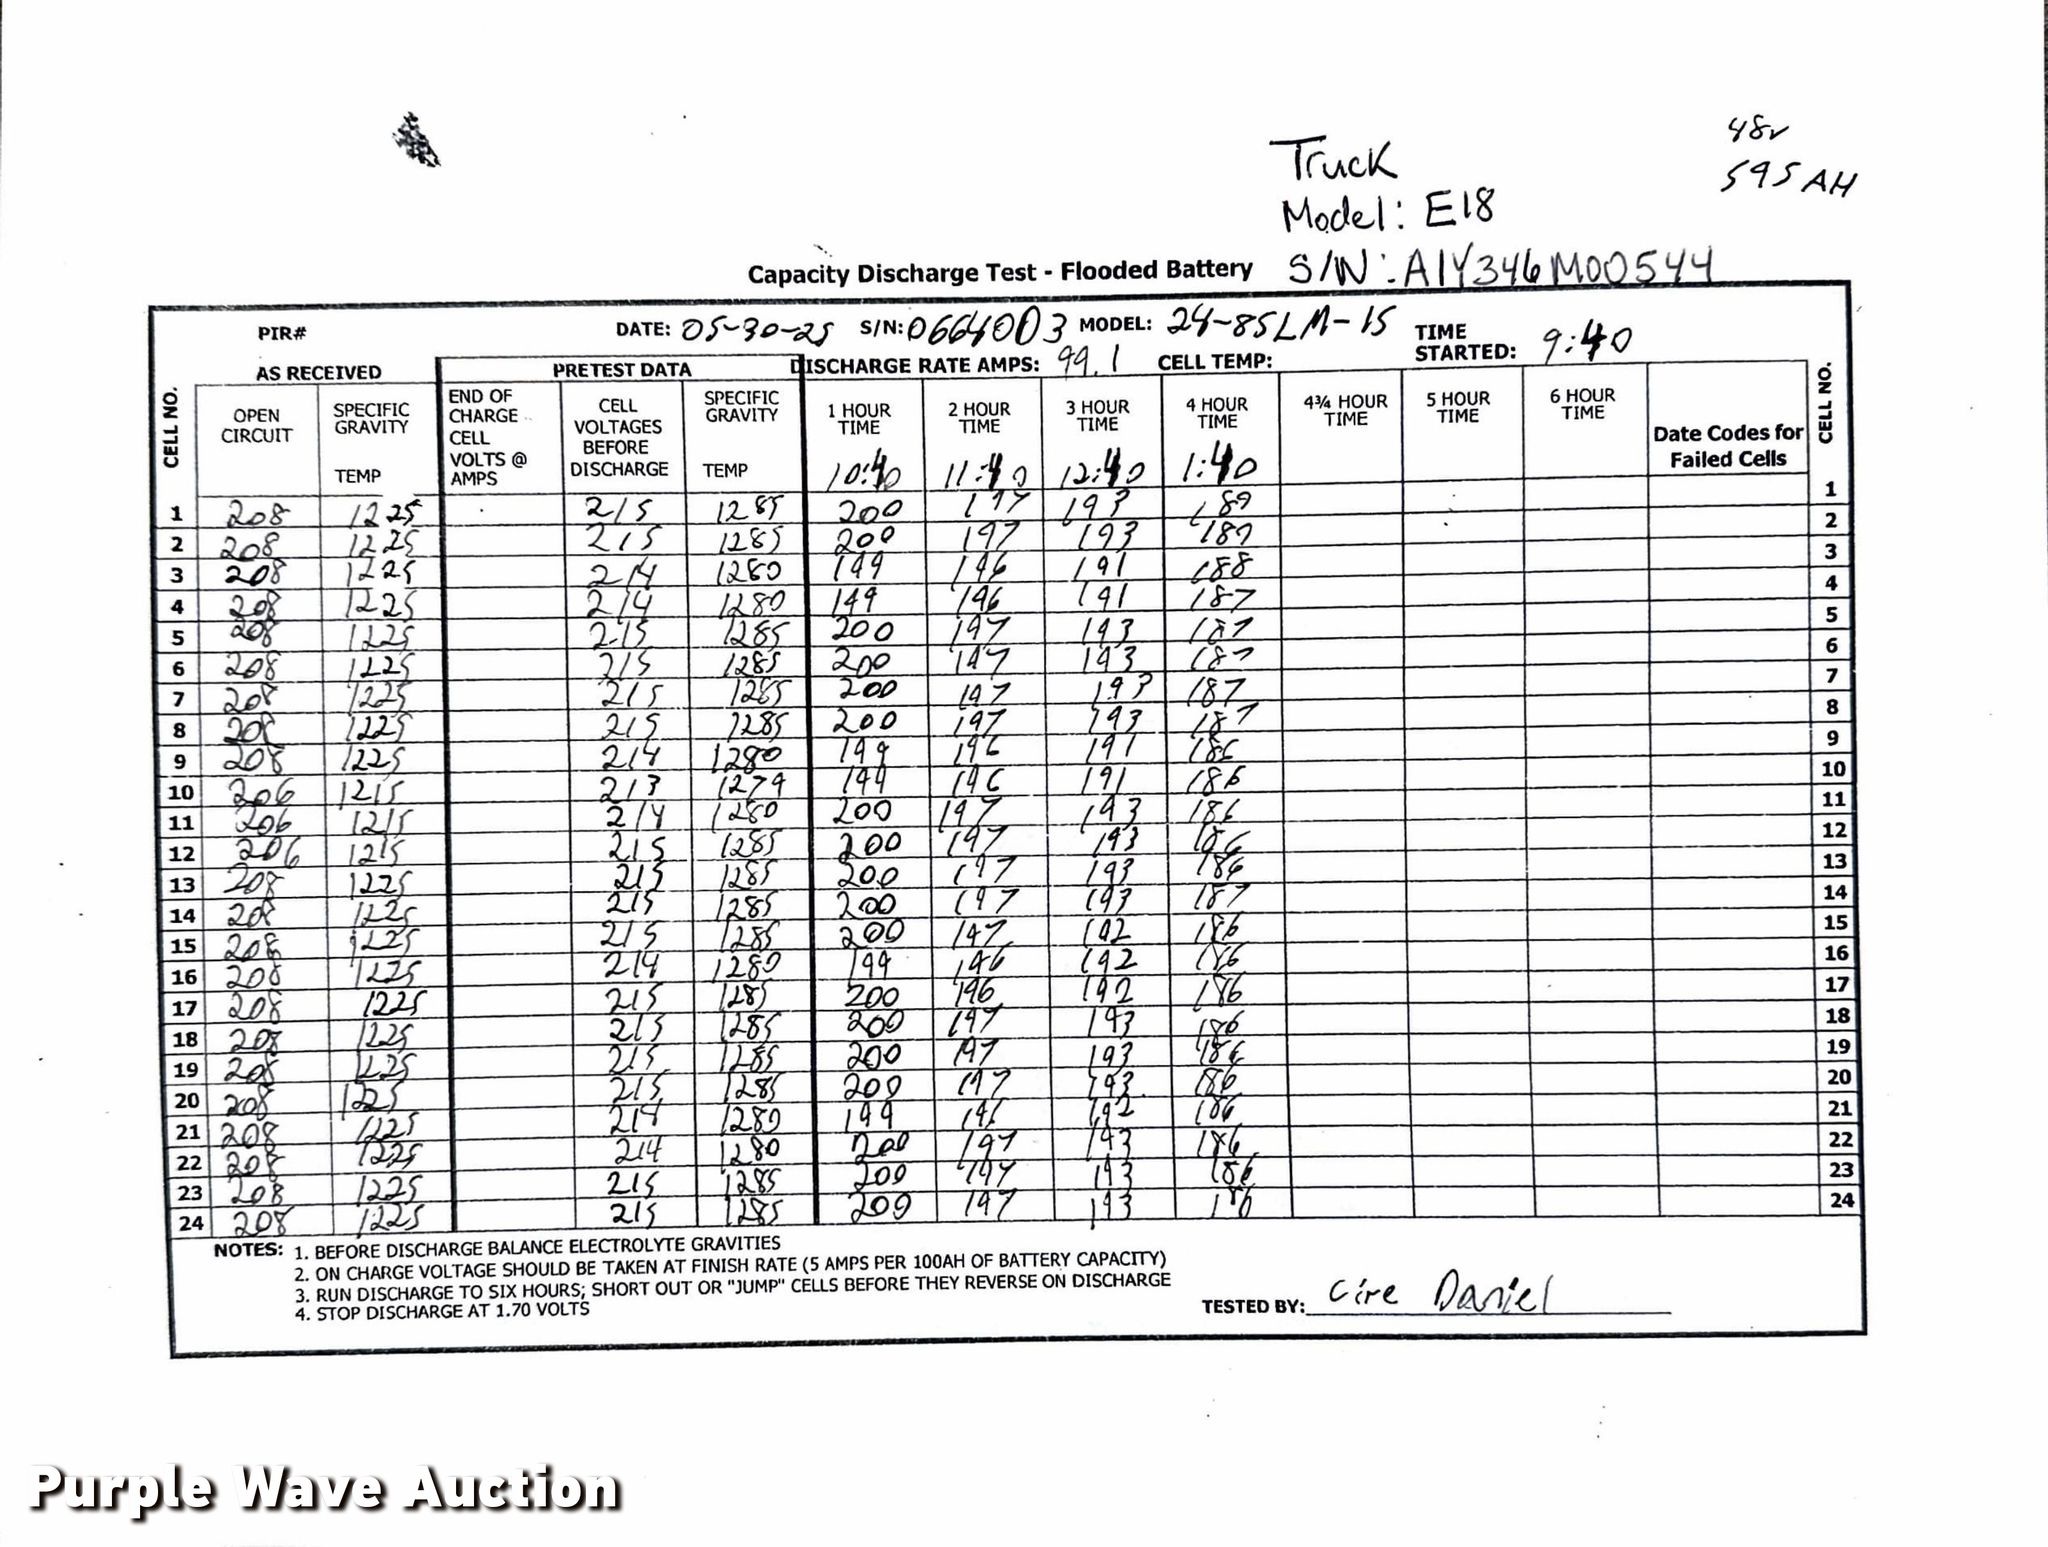 48v
595 AH
Truck
Model: E18
S/N: A1Y346M00544
Capacity Discharge Test - Flooded Battery
PIR# DATE: 05-30-25 S/N: 0664003 MODEL: 24-85LM-15 TIME STARTED: 9:40
AS RECEIVED PRETEST DATA DISCHARGE RATE AMPS: 99.1 CELL TEMP:
CELL NO. OPEN CIRCUIT SPECIFIC GRAVITY TEMP END OF CHARGE CELL VOLTS @ AMPS CELL VOLTAGES BEFORE DISCHARGE SPECIFIC GRAVITY TEMP 1 HOUR TIME 10:40 2 HOUR TIME 11:40 3 HOUR TIME 12:40 4 HOUR TIME 1:40 4¾ HOUR TIME 5 HOUR TIME 6 HOUR TIME Date Codes for Failed Cells CELL NO.
1 208 1225 215 1285 200 197 193 189 1
2 208 1225 215 1285 200 197 193 187 2
3 208 1225 214 1280 199 196 191 188 3
4 208 1225 214 1280 199 196 191 187 4
5 208 1225 215 1285 200 197 193 187 5
6 208 1225 215 1285 200 197 193 187 6
7 208 1225 215 1285 200 197 193 187 7
8 208 1225 215 1285 200 197 193 187 8
9 208 1225 214 1280 199 196 191 186 9
10 206 1215 213 1279 199 196 191 186 10
11 206 1215 214 1280 200 197 193 186 11
12 206 1215 215 1285 200 197 193 186 12
13 208 1225 215 1285 200 197 193 186 13
14 208 1225 215 1285 200 197 193 187 14
15 208 1225 215 1285 200 197 192 186 15
16 208 1225 214 1280 199 196 192 186 16
17 208 1225 215 1285 200 196 192 186 17
18 208 1225 215 1285 200 197 193 186 18
19 208 1225 215 1285 200 197 193 186 19
20 208 1225 215 1285 200 197 193 186 20
21 208 1225 214 1280 199 196 192 186 21
22 208 1225 214 1280 200 197 193 186 22
23 208 1225 215 1285 200 197 193 186 23
24 208 1225 215 1285 200 197 193 186 24
NOTES: 1. BEFORE DISCHARGE BALANCE ELECTROLYTE GRAVITIES
2. ON CHARGE VOLTAGE SHOULD BE TAKEN AT FINISH RATE (5 AMPS PER 100AH OF BATTERY CAPACITY)
3. RUN DISCHARGE TO SIX HOURS; SHORT OUT OR "JUMP" CELLS BEFORE THEY REVERSE ON DISCHARGE
4. STOP DISCHARGE AT 1.70 VOLTS
TESTED BY: Cire Daniel
Purple Wave Auction